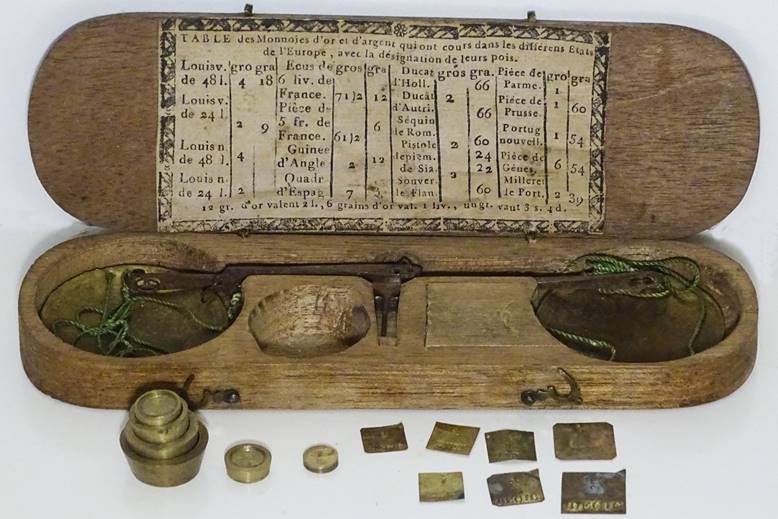 TABLE des Monnoies d'or et d'argent qui ont cours dans les différens Etats
de l'Europe, avec la désignation de leurs pois.
Louisv. gro gra
de 48 l. 4 18
Louis v.
de 24 l. 2 9
Louis n
de 48 l. 4
Louis n.
de 24 l. 2
Ecus de gros gra
6 liv. de
France. 7 1)2 12
Pièce de
5 fr. de 6
France. 6 1)2
Guinee
d'Angle 2 12
Quadr
d'Espag 7
Ducat gros gra.
d'Holl. 66
Ducat 2
d'Autri. 66
Séquin
de Rom. 2 60
Pistole 24
de Sia. 22
Souver.
de Flan. 60
Pièce de gro gra
Parme. 1
Pièce de 1 60
Prusse.
Portug 1 54
nouvell.
Pièce de 6 54
Gênes.
Milleret
de Port. 2 39
12 gr. d'or valent 2 l., 6 grains d'or val. 1 liv., un gr. vaut 3 s. 4 d.